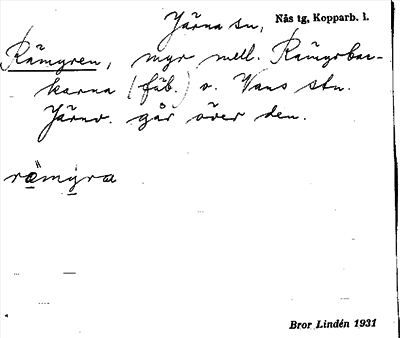 Järna sn, Nås tg, Kopparb. l.
Rämyren, myr mell. Rämyrbac-
karna (fäb.) o. Vans stn.
Järnv. går över den.
rämyra
Bror Lindén 1931